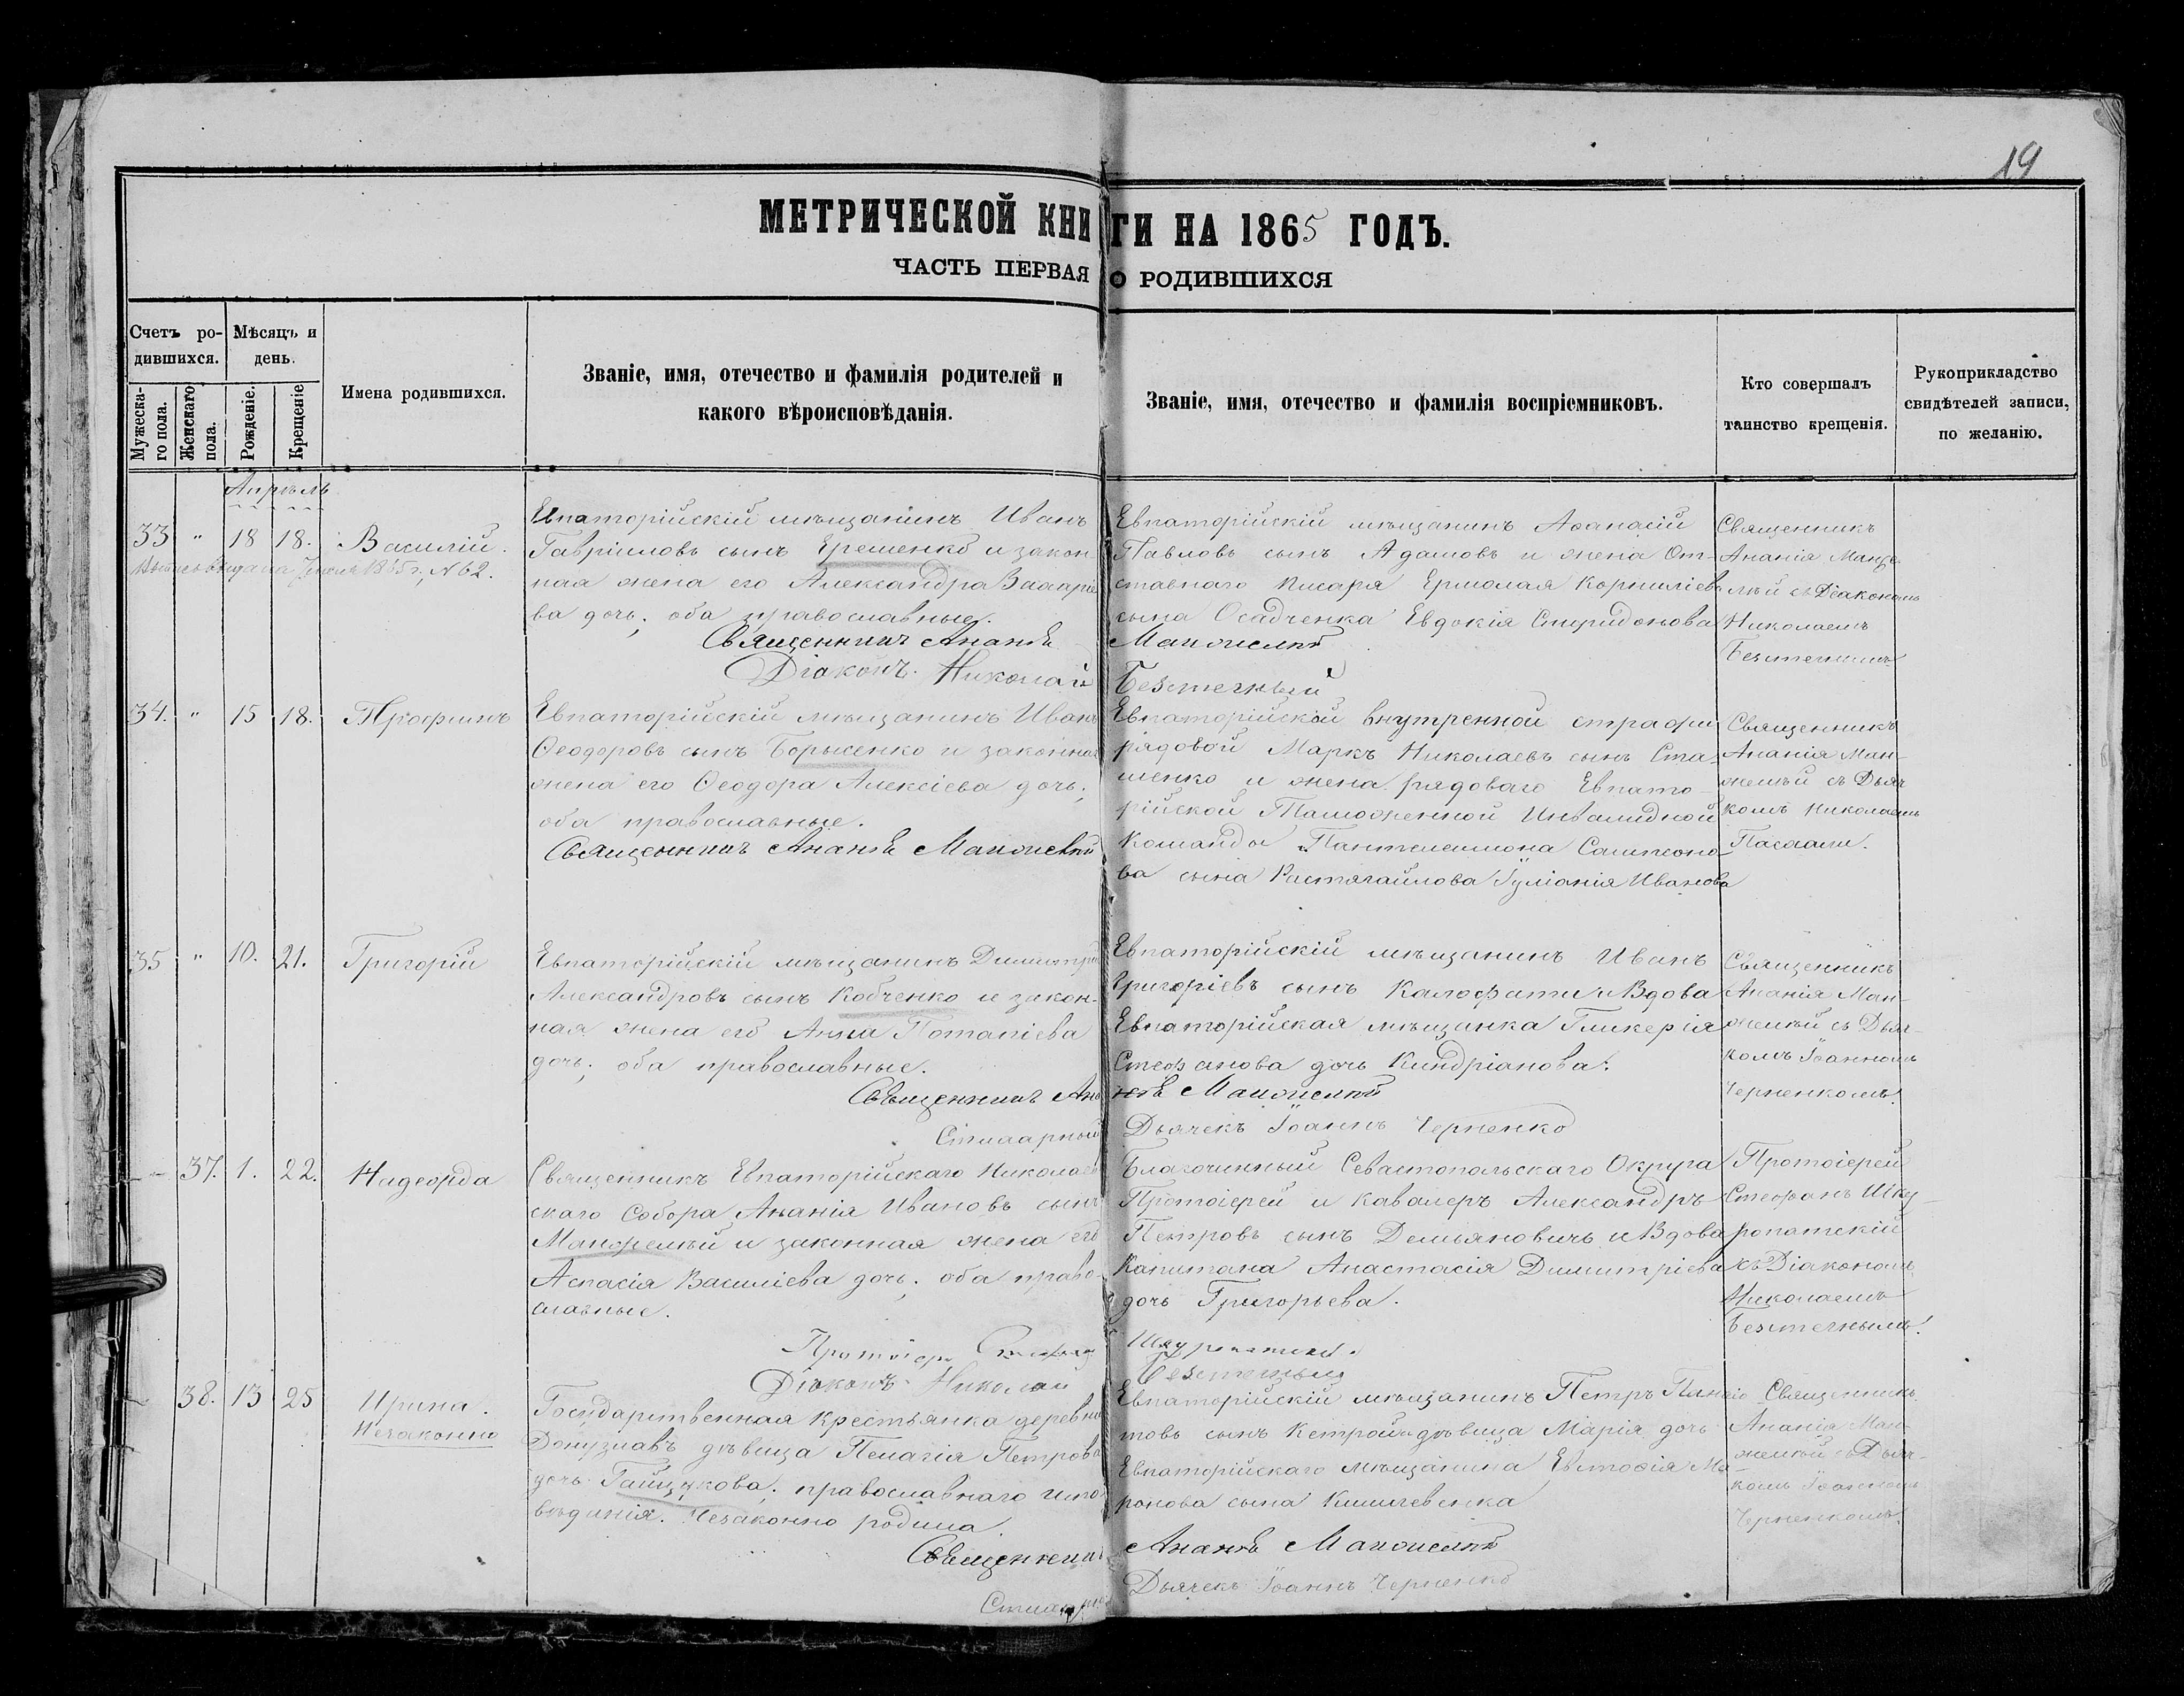 19
МЕТРИЧЕСКОЙ КНИГИ НА 1865 ГОДЪ.
ЧАСТЬ ПЕРВАЯ О РОДИВШИХСЯ
Счетъ ро-
дившихся.
Мужеска-
го пола.
Женскаго
пола.
Мѣсяцъ и
день.
Рожденіе.
Крещеніе
Имена родившихся.
Званіе, имя, отечество и фамилія родителей и
какого вѣроисповѣданія.
Званіе, имя, отечество и фамилія воспріемниковъ.
Кто совершалъ
таинство крещенія.
Рукоприкладство
свидѣтелей записи,
по желанію.
Апрѣль
33 " 18 18. Василій.
№ 62.
Евпаторійскій мѣщанинъ Иванъ
Гавріиловъ сынъ Ерешенко и закон
ная жена его Александра Захаріе
ва дочь; оба православные.
Священникъ Ананія
Діаконъ Николай
Евпаторійскій мѣщанинъ Аѳанасій
Павловъ сынъ Адамовъ и жена От-
ставнаго писаря Ермолая Корниліев
сына Осадченка Евдокія Спиридонова
Манжелѣй
Безтечный
Священникъ
Ананія Манже
лѣй съ Діакономъ
Николаемъ
Безтечнымъ
34. " 15 18. Трофимъ
Евпаторійскій мѣщанинъ Иванъ
Ѳеодоровъ сынъ Борысенко и законная
жена его Ѳеодора Алексіева дочь;
оба православные.
Священникъ Ананія Манжелѣй
Евпаторійской внутренной стражи
рядовой Маркъ Николаевъ сынъ Ста
шенко и жена рядоваго Евпато-
рійской Таможенной Инвалидной
Команды Пантелеимона Сампсоно-
ва сына Растягайлова Іуліанія Иванова
Священникъ
Ананія Ман-
желѣй съ Дьяч
комъ Николаемъ
35 " 10. 21. Григорій
Евпаторійскій мѣщанинъ Димитрій
Александровъ сынъ Кобченко и закон-
ная жена его Анна Потапіева
дочь; оба православные.
Священникъ Ана
Евпаторійскій мѣщанинъ Иванъ
Григоріевъ сынъ Калофати и Вдова
Евпаторійская мѣщанка Гликерія
Стефанова дочь Киндріанова.
нія Манжелѣй
Дьячекъ Іоаннъ Черненко
Священникъ
Ананія Ман-
желѣй съ Дьяч-
комъ Іоанномъ
Черненкомъ.
37. 1. 22. Надежда
Священникъ Евпаторійскаго Николаев
скаго Собора Ананія Ивановъ сынъ
Манжелѣй и законная жена его
Аспасія Василіева дочь; оба право-
славные.
Протоіер. Стефанъ
Діаконъ Николай
Благочинный Севастопольскаго Округа
Протоіерей и Кавалеръ Александръ
Петровъ сынъ Демьяновичь и Вдова
Капитана Анастасія Димитріева
дочь Григорьева.
Шкуропатскій.
Безтечный
Протоіерей
Стефанъ Шку-
ропатскій
съ Діакономъ
Николаемъ
Безтечнымъ.
38. 13 25 Ирина.
Незаконно
Государственная Крестьянка деревни
Донузлавъ дѣвица Пелагія Петрова
дочь Гайдукова; православнаго испо
вѣданія. Незаконно родила.
Священникъ
Евпаторійскій мѣщанинъ Петръ
товъ сынъ и дѣвица Марія дочь
Евпаторійскаго мѣщанина Евстафія Ми
ронова сына
Ананія Манжелѣй
Дьячекъ Іоаннъ Черненко
Священникъ
Ананія Ман-
желѣй съ Дьяч-
комъ Іоанномъ
Черненкомъ.